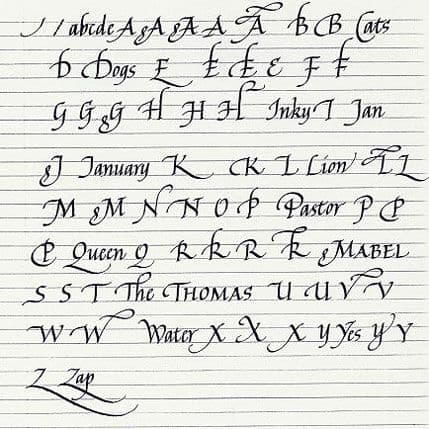 / / abcde A A A A A B B Cats
D Dogs E E E E F F
G G G H H H Inky I Jan
J January K K L Lion L L
M M N N O P Pastor P P
P Queen Q R R R R MABEL
S S T The THOMAS U U V V
W W Water X X X y Yes y Y
Z Zap